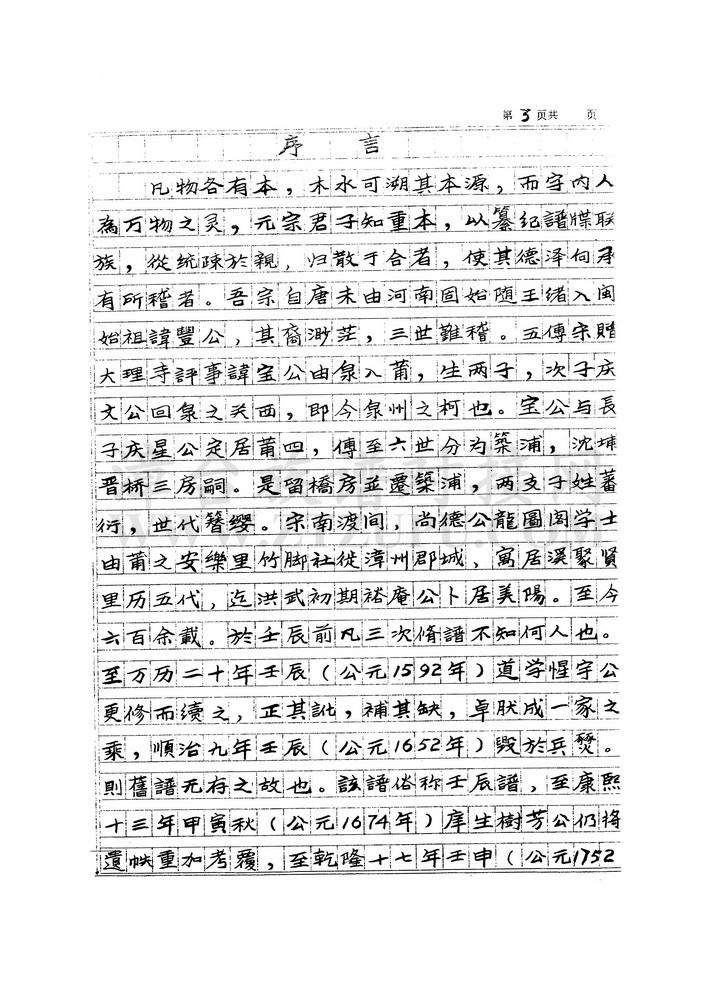 第 3 页共 页
序 言
凡物各有本，木水可溯其本源，而宇内人
為万物之灵，元宗君子知重本，以纂紀譜牒联
族，從统疎於親，归散于合者，使其德泽何承
有所稽者。吾宗自唐末由河南固始随王绪入闽
始祖諱豐公，其裔渺茫，三世難稽。五傳宋贈
大理寺評事諱宝公由泉入莆，生两子，次子庆
文公回泉之关西，即今泉州之柯也。宝公与長
子庆星公定居莆四，傳至六世分为築浦，沈埔
晋桥三房嗣。是留橋房並遷築浦，两支子姓蕃
衍，世代簪缨。宋南渡间，尚德公龍圖阁学士
由莆之安樂里竹脚社徙漳州郡城，寓居溪聚賢
里历五代，迄洪武初期裕庵公卜居美陽。至今
六百余載。於壬辰前凡三次脩譜不知何人也。
至万历二十年壬辰（公元1592年）道学惺宇公
更修而續之，正其訛，補其缺，卓肰成一家之
乘，順治九年壬辰（公元1652年）毁於兵燹。
則舊譜无存之故也。該譜俗称壬辰譜，至康熙
十三年甲寅秋（公元1674年）庠生樹芳公仍将
遺帙重加考覆，至乾隆十七年壬申（公元1752